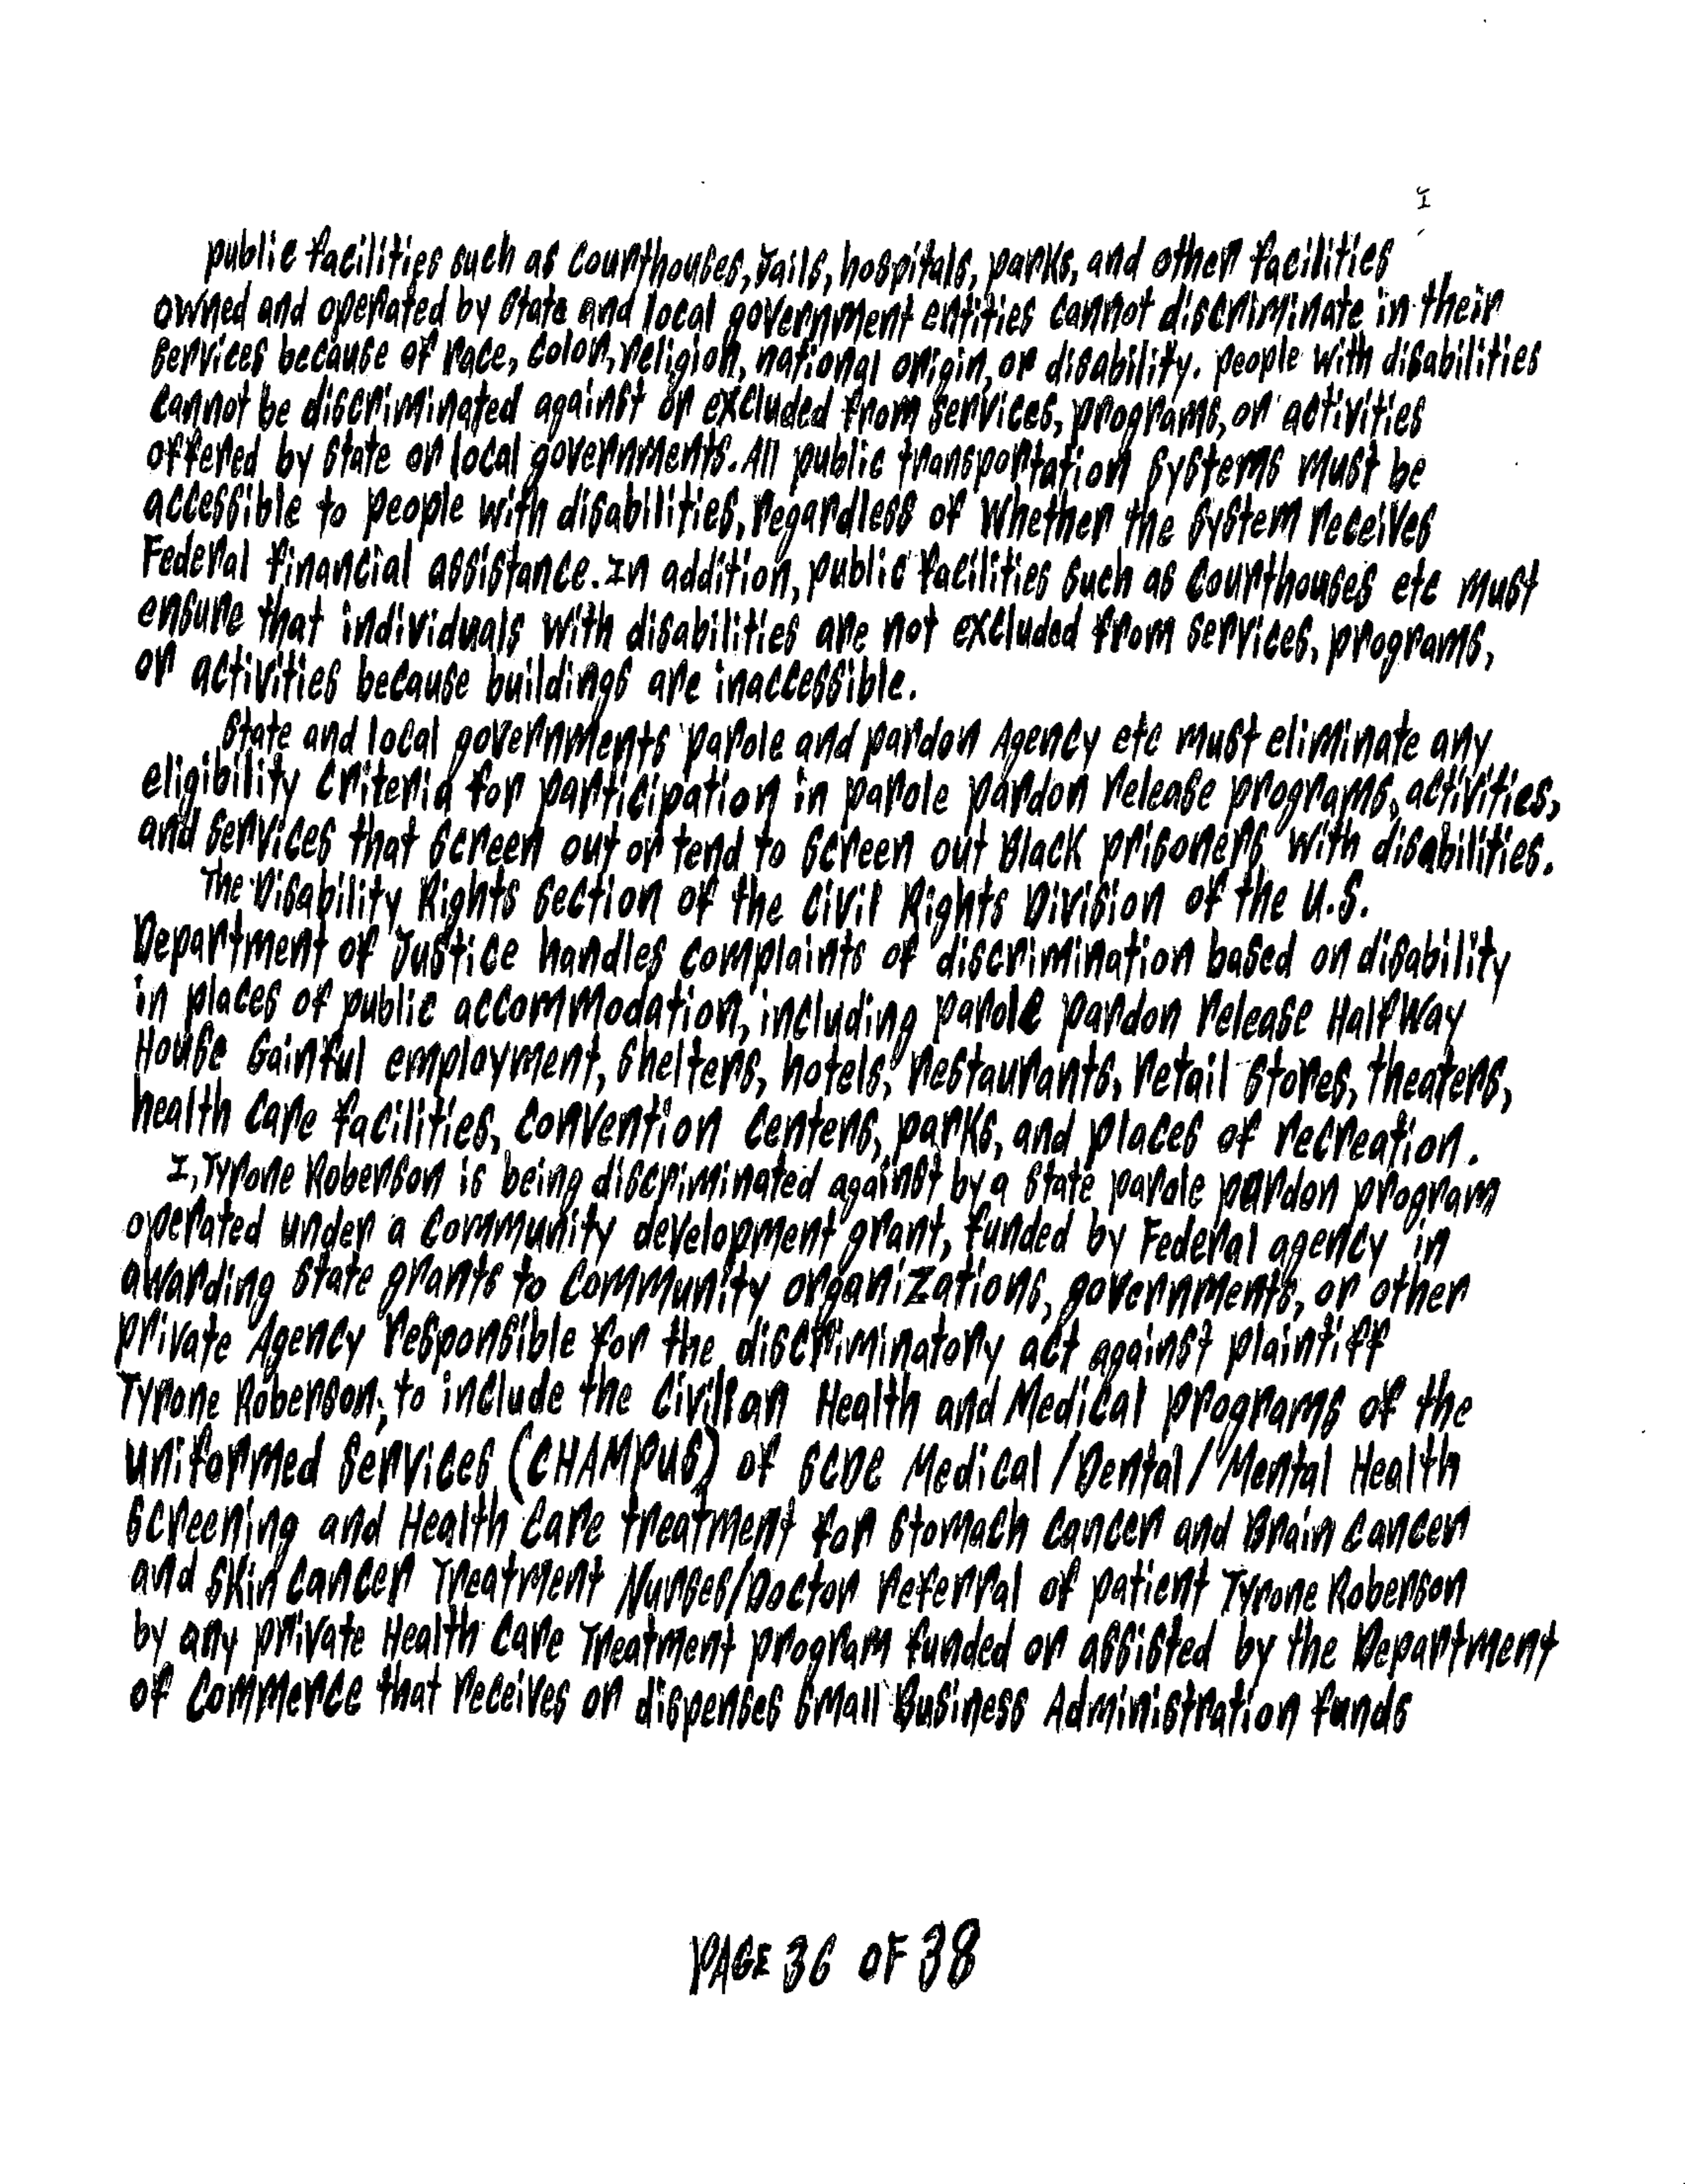 public facilities such as courthouses, Jails, hospitals, parks, and other facilities
owned and operated by state and local government entities cannot discriminate in their
services because of race, color, religion, national origin, or disability. people with disabilities
cannot be discriminated against or excluded from services, programs, or activities
offered by state or local governments. All public transportation systems must be
accessible to people with disabilities, regardless of whether the system receives
Federal financial assistance. In addition, public facilities such as courthouses etc must
ensure that individuals with disabilities are not excluded from services, programs,
or activities because buildings are inaccessible.
State and local governments parole and pardon Agency etc must eliminate any
eligibility criteria for participation in parole pardon release programs, activities,
and services that screen out or tend to screen out Black prisoners with disabilities.
The Disability Rights Section of the Civil Rights Division of the U.S.
Department of Justice handles complaints of discrimination based on disability
in places of public accommodation, including parole pardon release HalfWay
House Gainful employment, shelters, hotels, restaurants, retail stores, theaters,
health care facilities, convention centers, parks, and places of recreation.
I, Tyrone Roberson is being discriminated against by a state parole pardon program
operated under a community development grant, funded by Federal agency in
awarding state grants to community organizations, governments, or other
private Agency responsible for the discriminatory act against plaintiff
Tyrone Roberson; to include the Civilian Health and Medical programs of the
uniformed services (CHAMPUS) of SCDC Medical/Dental/Mental Health
screening and Health Care treatment for stomach cancer and Brain cancer
and skin cancer Treatment Nurses/Doctor referral of patient Tyrone Roberson
by any private Health Care Treatment program funded or assisted by the Department
of Commerce that receives or dispenses Small Business Administration funds
PAGE 36 OF 38